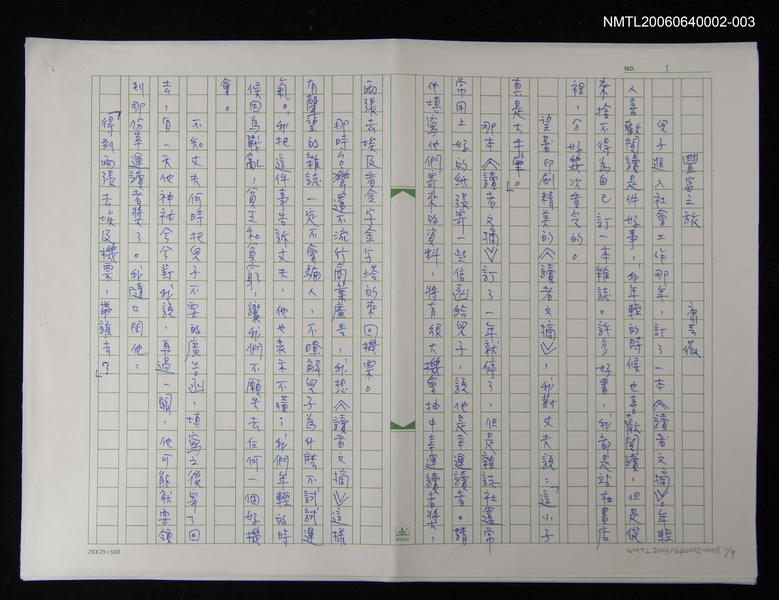 NMTL20060640002-003
NO. 1
豐富之旅　康芸薇
兒子進入社會工作那年，訂了一本《讀者文摘》。年輕
人喜歡閱讀是件好事，我年輕的時候也喜歡閱讀，但是從
來捨不得為自己訂一本雜誌。許多好書，我都是站在書店
裡，分好幾次看完的。
望著印刷精美的《讀者文摘》，我對丈夫說：「這小子
真是大手筆。」
那本《讀者文摘》訂了一年就停了，但是雜誌社還常
常用上好的紙張寄一些信函給兒子，說他是幸運讀者。請
他填寫他們寄來的資料，將有很大機會抽中幸運讀者獎，
兩張去埃及看金字塔的來回機票。
那時台灣還不流行商業廣告，我想《讀者文摘》這樣
有聲望的雜誌一定不會騙人，不瞭解兒子為什麼不試試運
氣。我把這件事告訴丈夫，他也表示不懂；我們年輕的時
候因為戰亂，貧乏和貧窮，讓我們不願失去任何一個好機
會。
不知丈夫何時把兒子不要的廣告函，填寫之後寄了回
去，有一天他神祕兮兮對我說，再過一關，他可能就要領
到那份幸運讀者獎了。我隨口問他：
「得到兩張去埃及機票，帶誰去？」
20X25=500
NMTL20060640002-003, 1/9